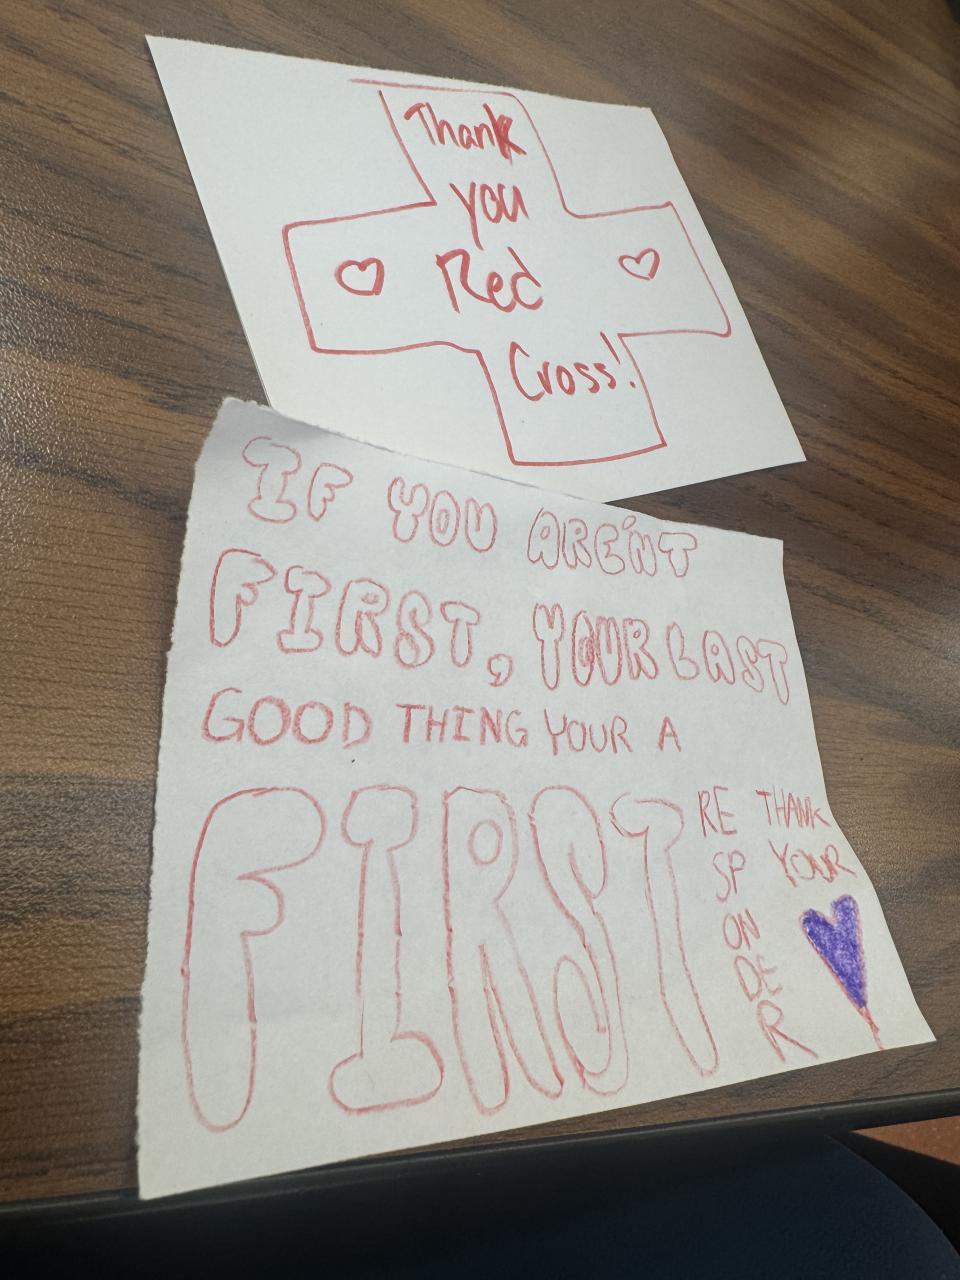 Thank
you
Red
Cross!
IF YOU ARE'NT
FIRST, YOUR LAST
GOOD THING YOUR A
FIRST
RE
SP
ON
DE
R
THANK
YOUR